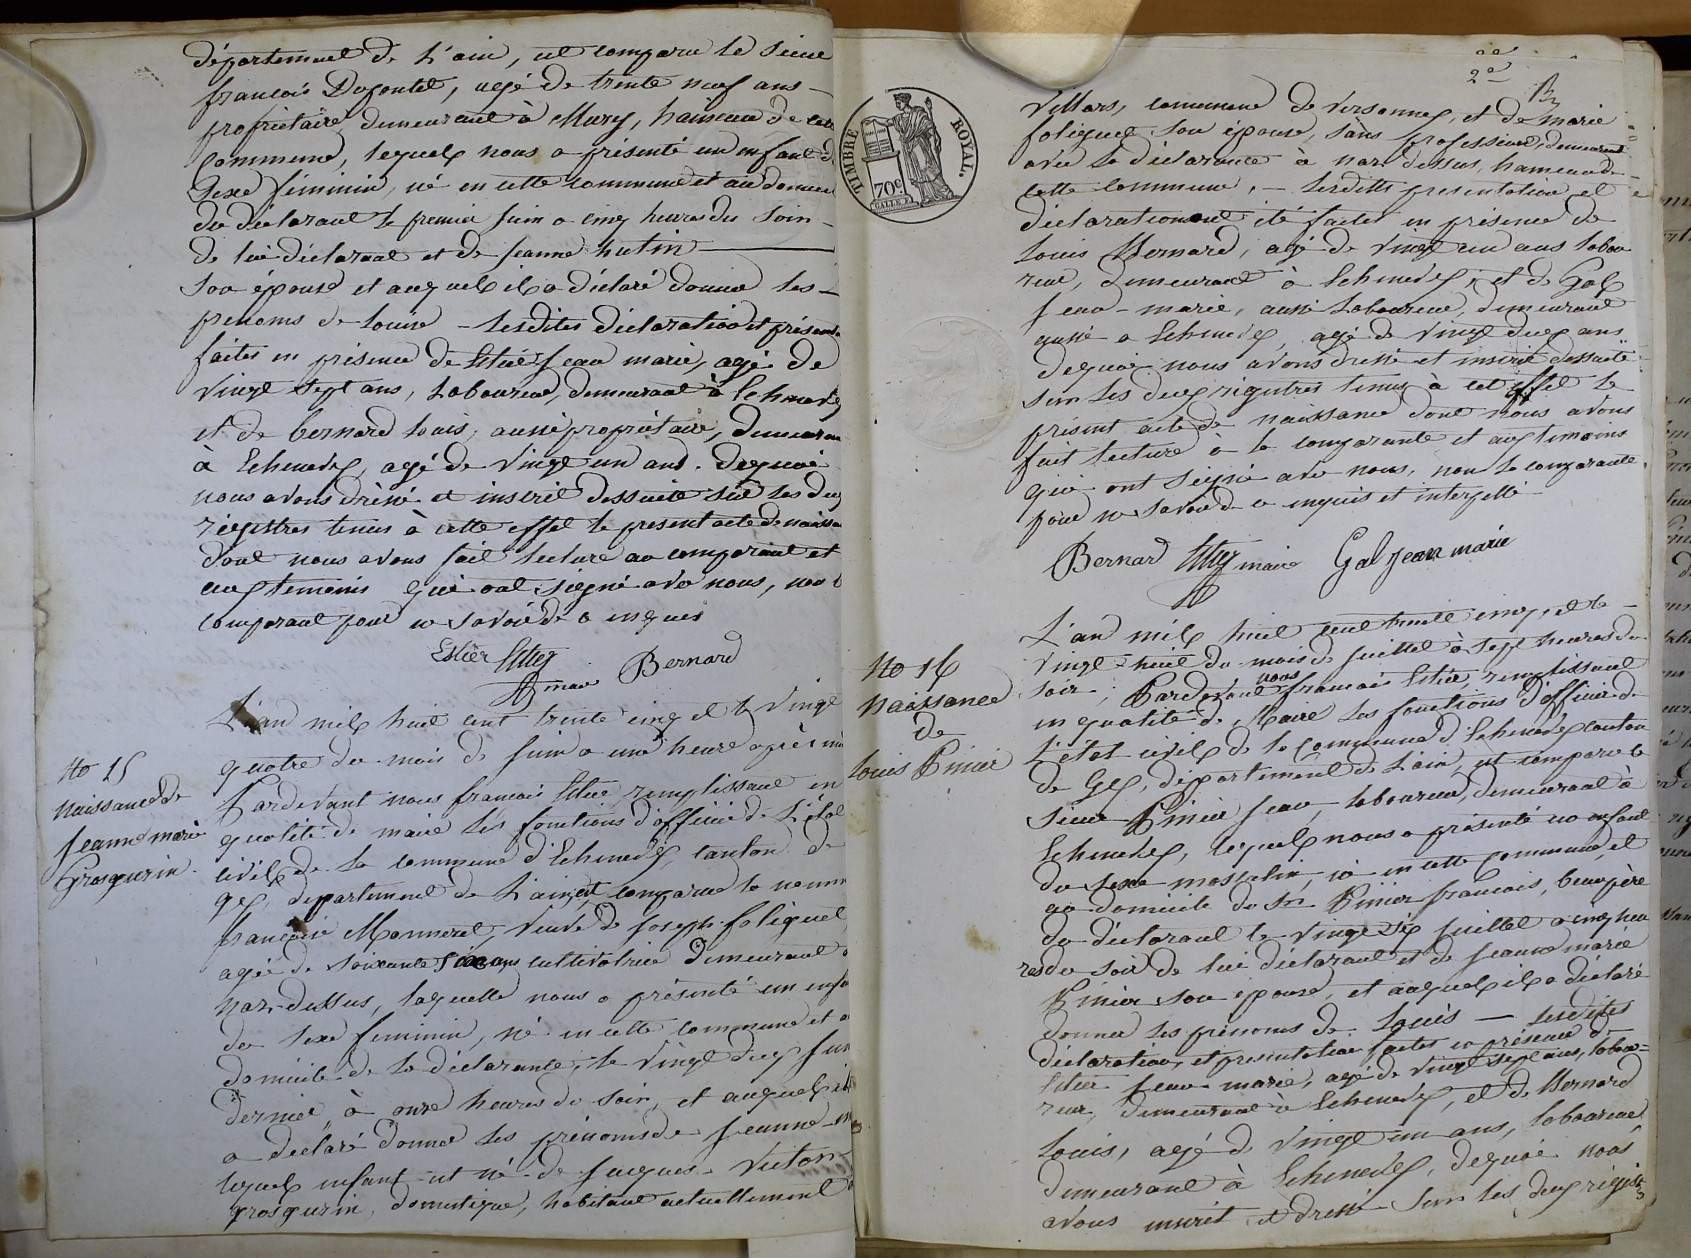 département de L'ain, est comparu le sieur
francois Dupontet, agé de trente neuf ans
propriétaire, demeurant à Mury, hameau de cette
Commune, lequel nous a présenté un enfant d
Sexe féminin, né en cette commune et au domicile
du déclarant le premier juin a cinq heures du soir
de lui déclarant et de jeanne hutin
son épouse et auquel il a déclaré donner les
prenoms de Louise - lesdites déclaration et présenta
faites en présence de Estier jean marie, agé de
vingt sept ans, laboureur, demeurant à Echenevex
et de bernard louis, aussi propriétaire, demeuran
à Echenevex, agé de vingt un ans. dequoi
nous avons dréssé et inscrit dessuite sur les deux
régistres tenus à cette effet le present acte de naissa
dont nous avons fait lecture au comparant et
aux temoins qui ont signé avec nous, non l
comparant pour ne savoir de ce enquis
Estier maire Bernard
No 15
Naissance de
jeanne marie
Grosgurin
L'an mil huit cent trente cinq et le vingt
quatre du mois de juin a une heure après mi
Pardevant nous francois Estier remplissant en
qualité de maire les fonctions d'officier de L'état
civil de la commune d'Echenevex, canton de
gex, département de L'ain, est comparue la nomm
francoise Monneret, veuve de joseph foliguet
agée de soixante ans cultivatrice demeurant
Nazdessus, laquelle nous a présenté un enfa
du sexe feminin, né en cette commune et a
domicile de la déclarante, le vingt deux juin
dernier, à onze heures du soir, et auquel
a declaré donner les prénoms de jeanne
lequel enfant est né de jacques Victor
grosgurin, domestique, habitant actuellement
2e
2e
TIMBRE ROYAL.
70c
Villars, commune de Versonnex, et de marie
foliguet son épouse, sans profession, demeurant
avec la déclarante à nazdessus, hameau de
cette commune, - lesdittes presentation et
déclaration ont été faites en présence de
Louis Bernard, agé de vingt un ans labou
reur, demeurant à Echenevex, et de Gal
jean-marie, aussi laboureur, demeurant
aussi a Echenevex, agé de vingt deux ans
dequoi nous avons dressé et inscrit dessuite
sur les deux registres tenus à cet effet le
présent acte de naissance dont nous avons
fait lecture à la comparante et aux temoins
qui ont signé avec nous, non la comparante
pour ne savoir de ce enquis et interpellé
Bernard maire Gal jean marie
No 16
Naissance
de
Louis Pinier
L'an mil huit cent trente cinq et le
vingt-huit du mois de juillet à sept heures du
soir, Pardevant nous francois Estier, remplissant
en qualité de Maire les fonctions d'officier de
L'état civil de la Commune d'Echenevex canton
de Gex, département de L'ain, est comparu le
sieur Pinier jean, laboureur, demeurant à
Echenevex, lequel nous a présenté un enfant
du sexe masculin, né en cette commune, et
au domicile du Sr Pinier francois, beaupère
du déclarant le vingt six juillet a cinq heu
res du soir de lui déclarant et de jeanne marie
Pinier son épouse, et auquel il a déclaré
donner les prénoms de Louis — lesdites
déclaration, et presentation faites en présence de
Estier jean-marie, agé de vingt sept ans, labou=
reur, demeurant à Echenevex, et de Bernard
Louis, agé de vingt un ans, laboureur
demeurant à Echenevex, dequoi nous
avons inscrit et dressé sur les deux régist